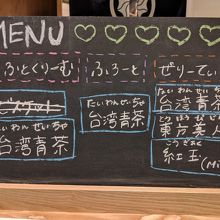 MENU
そふとくりーむ ふろーと ぜりーてぃ
たいわんせいちゃ
台湾青茶
たいわんせいちゃ
台湾青茶
たいわんせいちゃ
台湾青茶
とうほうび
東方美
こうぎょく
紅玉(Mi